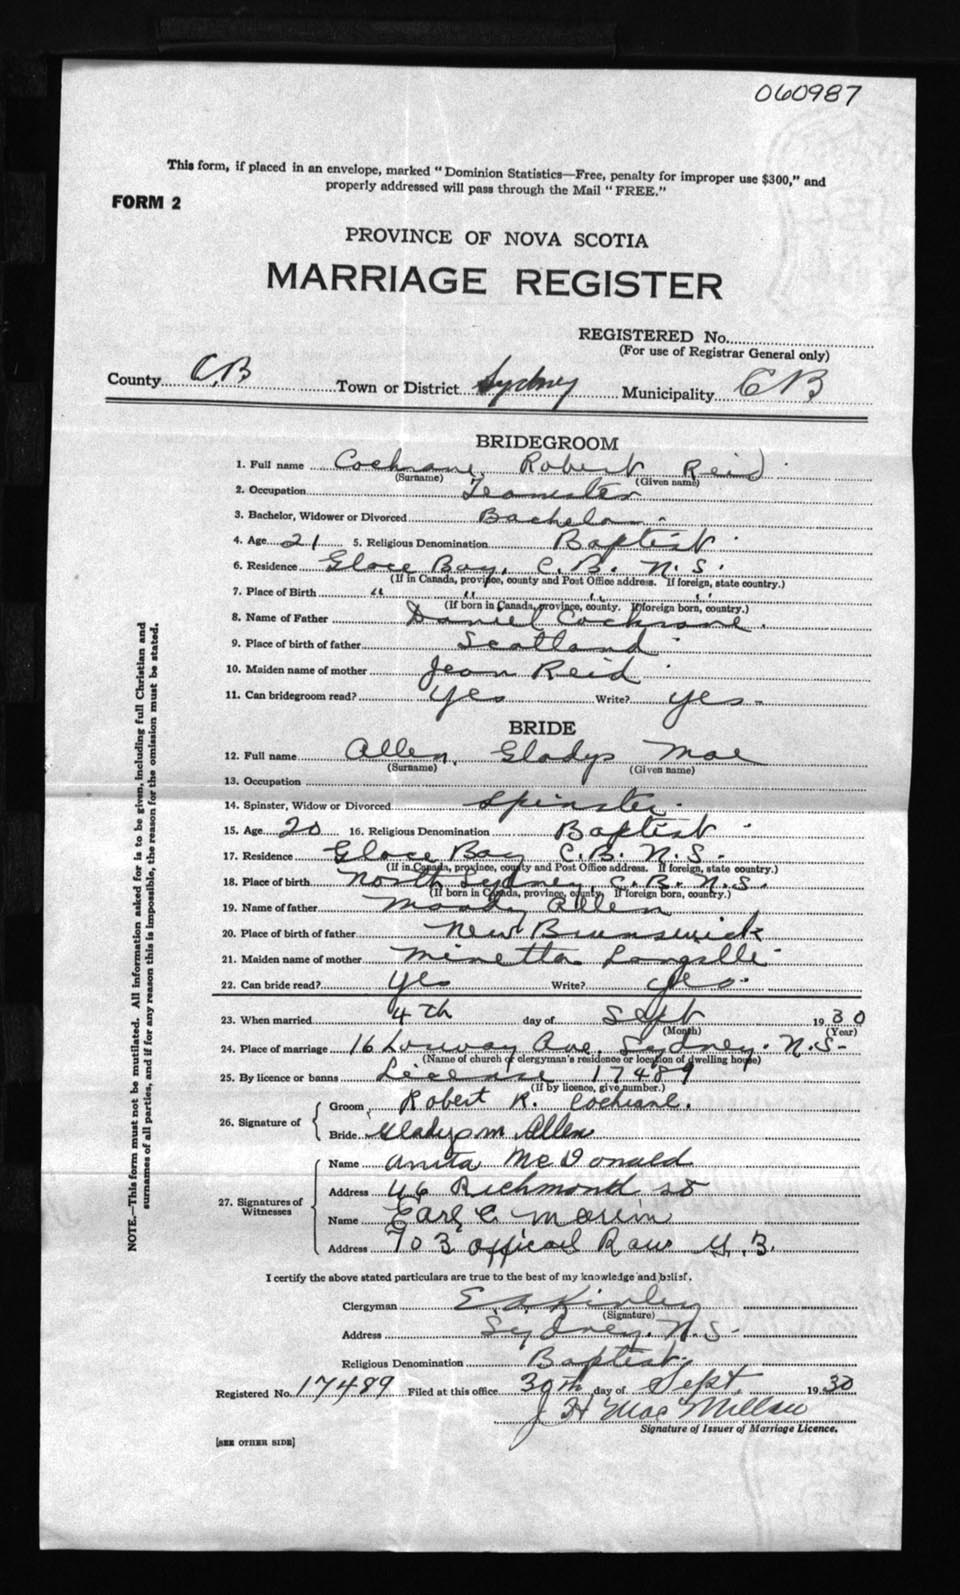 060987
This form, if placed in an envelope, marked "Dominion Statistics—Free, penalty for improper use $300," and
properly addressed will pass through the Mail "FREE."
FORM 2
PROVINCE OF NOVA SCOTIA
MARRIAGE REGISTER
REGISTERED No.
(For use of Registrar General only)
County C.B Town or District Sydney Municipality C B
BRIDEGROOM
1. Full name Cochrane, Robert Reid
(Surname) (Given name)
2. Occupation Teamster
3. Bachelor, Widower or Divorced Bachelor
4. Age 21 5. Religious Denomination Baptist
6. Residence Glace Bay, C.B. N.S.
(If in Canada, province, county and Post Office address. If foreign, state country.)
7. Place of Birth " " " "
(If born in Canada, province, county. If foreign born, country.)
8. Name of Father Daniel Cochrane.
9. Place of birth of father Scotland
10. Maiden name of mother Jean Reid
11. Can bridegroom read? yes Write? yes
BRIDE
12. Full name Allen, Gladys Mae
(Surname) (Given name)
13. Occupation
14. Spinster, Widow or Divorced Spinster
15. Age 20 16. Religious Denomination Baptist
17. Residence Glace Bay C.B. N.S.
(If in Canada, province, county and Post Office address. If foreign, state country.)
18. Place of birth North Sydney, C.B. N.S.
(If born in Canada, province, county. If foreign born, country.)
19. Name of father Moody Allen
20. Place of birth of father New Brunswick
21. Maiden name of mother Minetta
22. Can bride read? yes Write? yes
23. When married 4th day of Sept 1930
(Month) (Year)
24. Place of marriage 16 Ave, Sydney. N.S-
(Name of church or clergyman's residence or location of dwelling house)
25. By licence or banns License 17489
(If by licence, give number.)
26. Signature of
Groom Robert R. Cochrane.
Bride Gladys M Allen
27. Signatures of Witnesses
Name Anita McDonald
Address 46 Richmond St
Name Earl C.
Address 703 Official Row G.B.
I certify the above stated particulars are true to the best of my knowledge and belief.
Clergyman E A Kinley
(Signature)
Address Sydney, N.S-
Religious Denomination Baptist
Registered No. 17489 Filed at this office 30th day of Sept. 1930
J H MacMillan
Signature of Issuer of Marriage Licence.
[SEE OTHER SIDE]
NOTE.—This form must not be mutilated. All information asked for is to be given, including full Christian and
surnames of all parties, and if for any reason this is impossible, the reason for the omission must be stated.